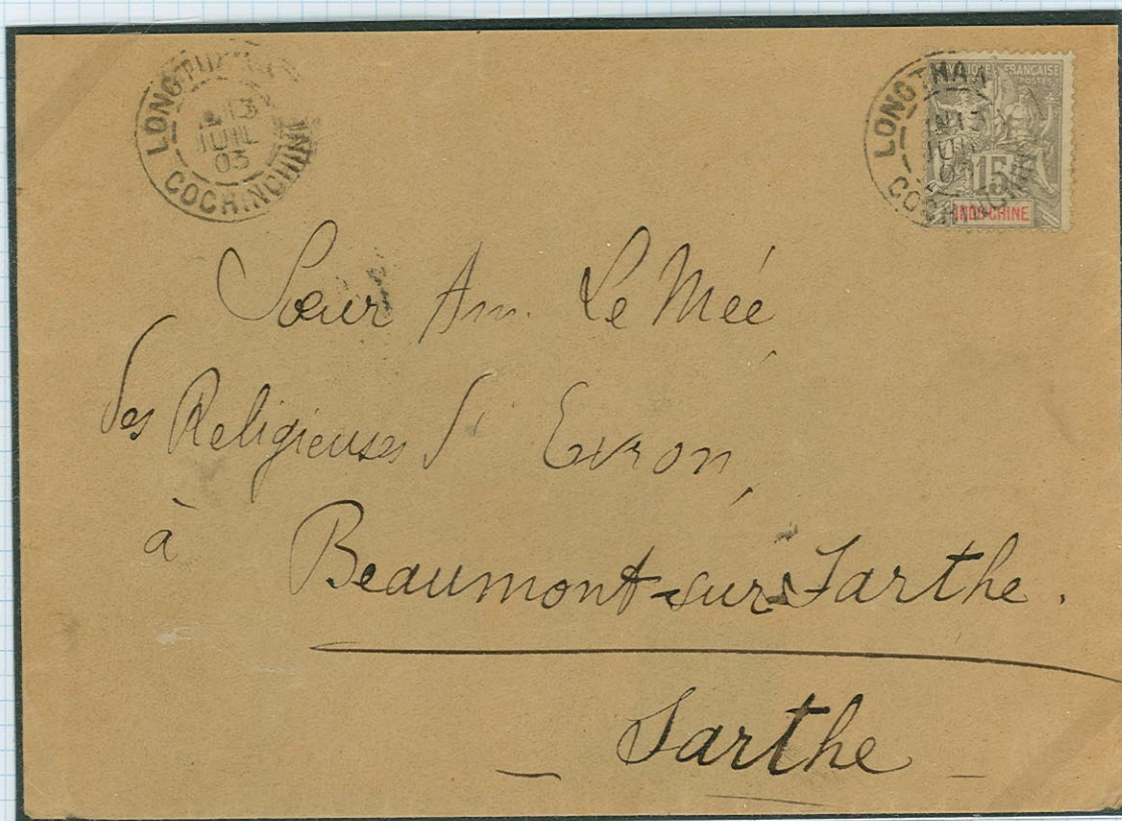 LONGTHANH
13
JUIL
03
COCHINCHINE
LONGTHANH
13
JUIL
03
COCHINCHINE
RÉPUBLIQUE FRANÇAISE
POSTES
15
INDO-CHINE
Sœur Am. Le Mée,
des Religieuses d'Evron,
à Beaumont-sur-Sarthe.
Sarthe